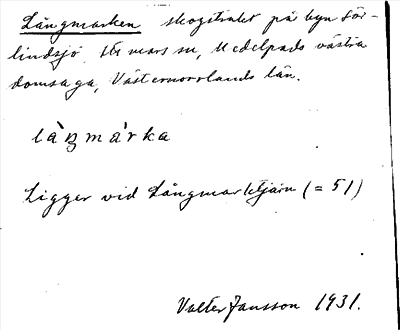 Långmarken skogstrakt på byn Sör-
lindsjö, sn, Medelpads västra
domsaga, Västernorrlands län.
làŋmárka
Ligger vid Långmarktjärn (= 51)
Valter Jansson 1931.